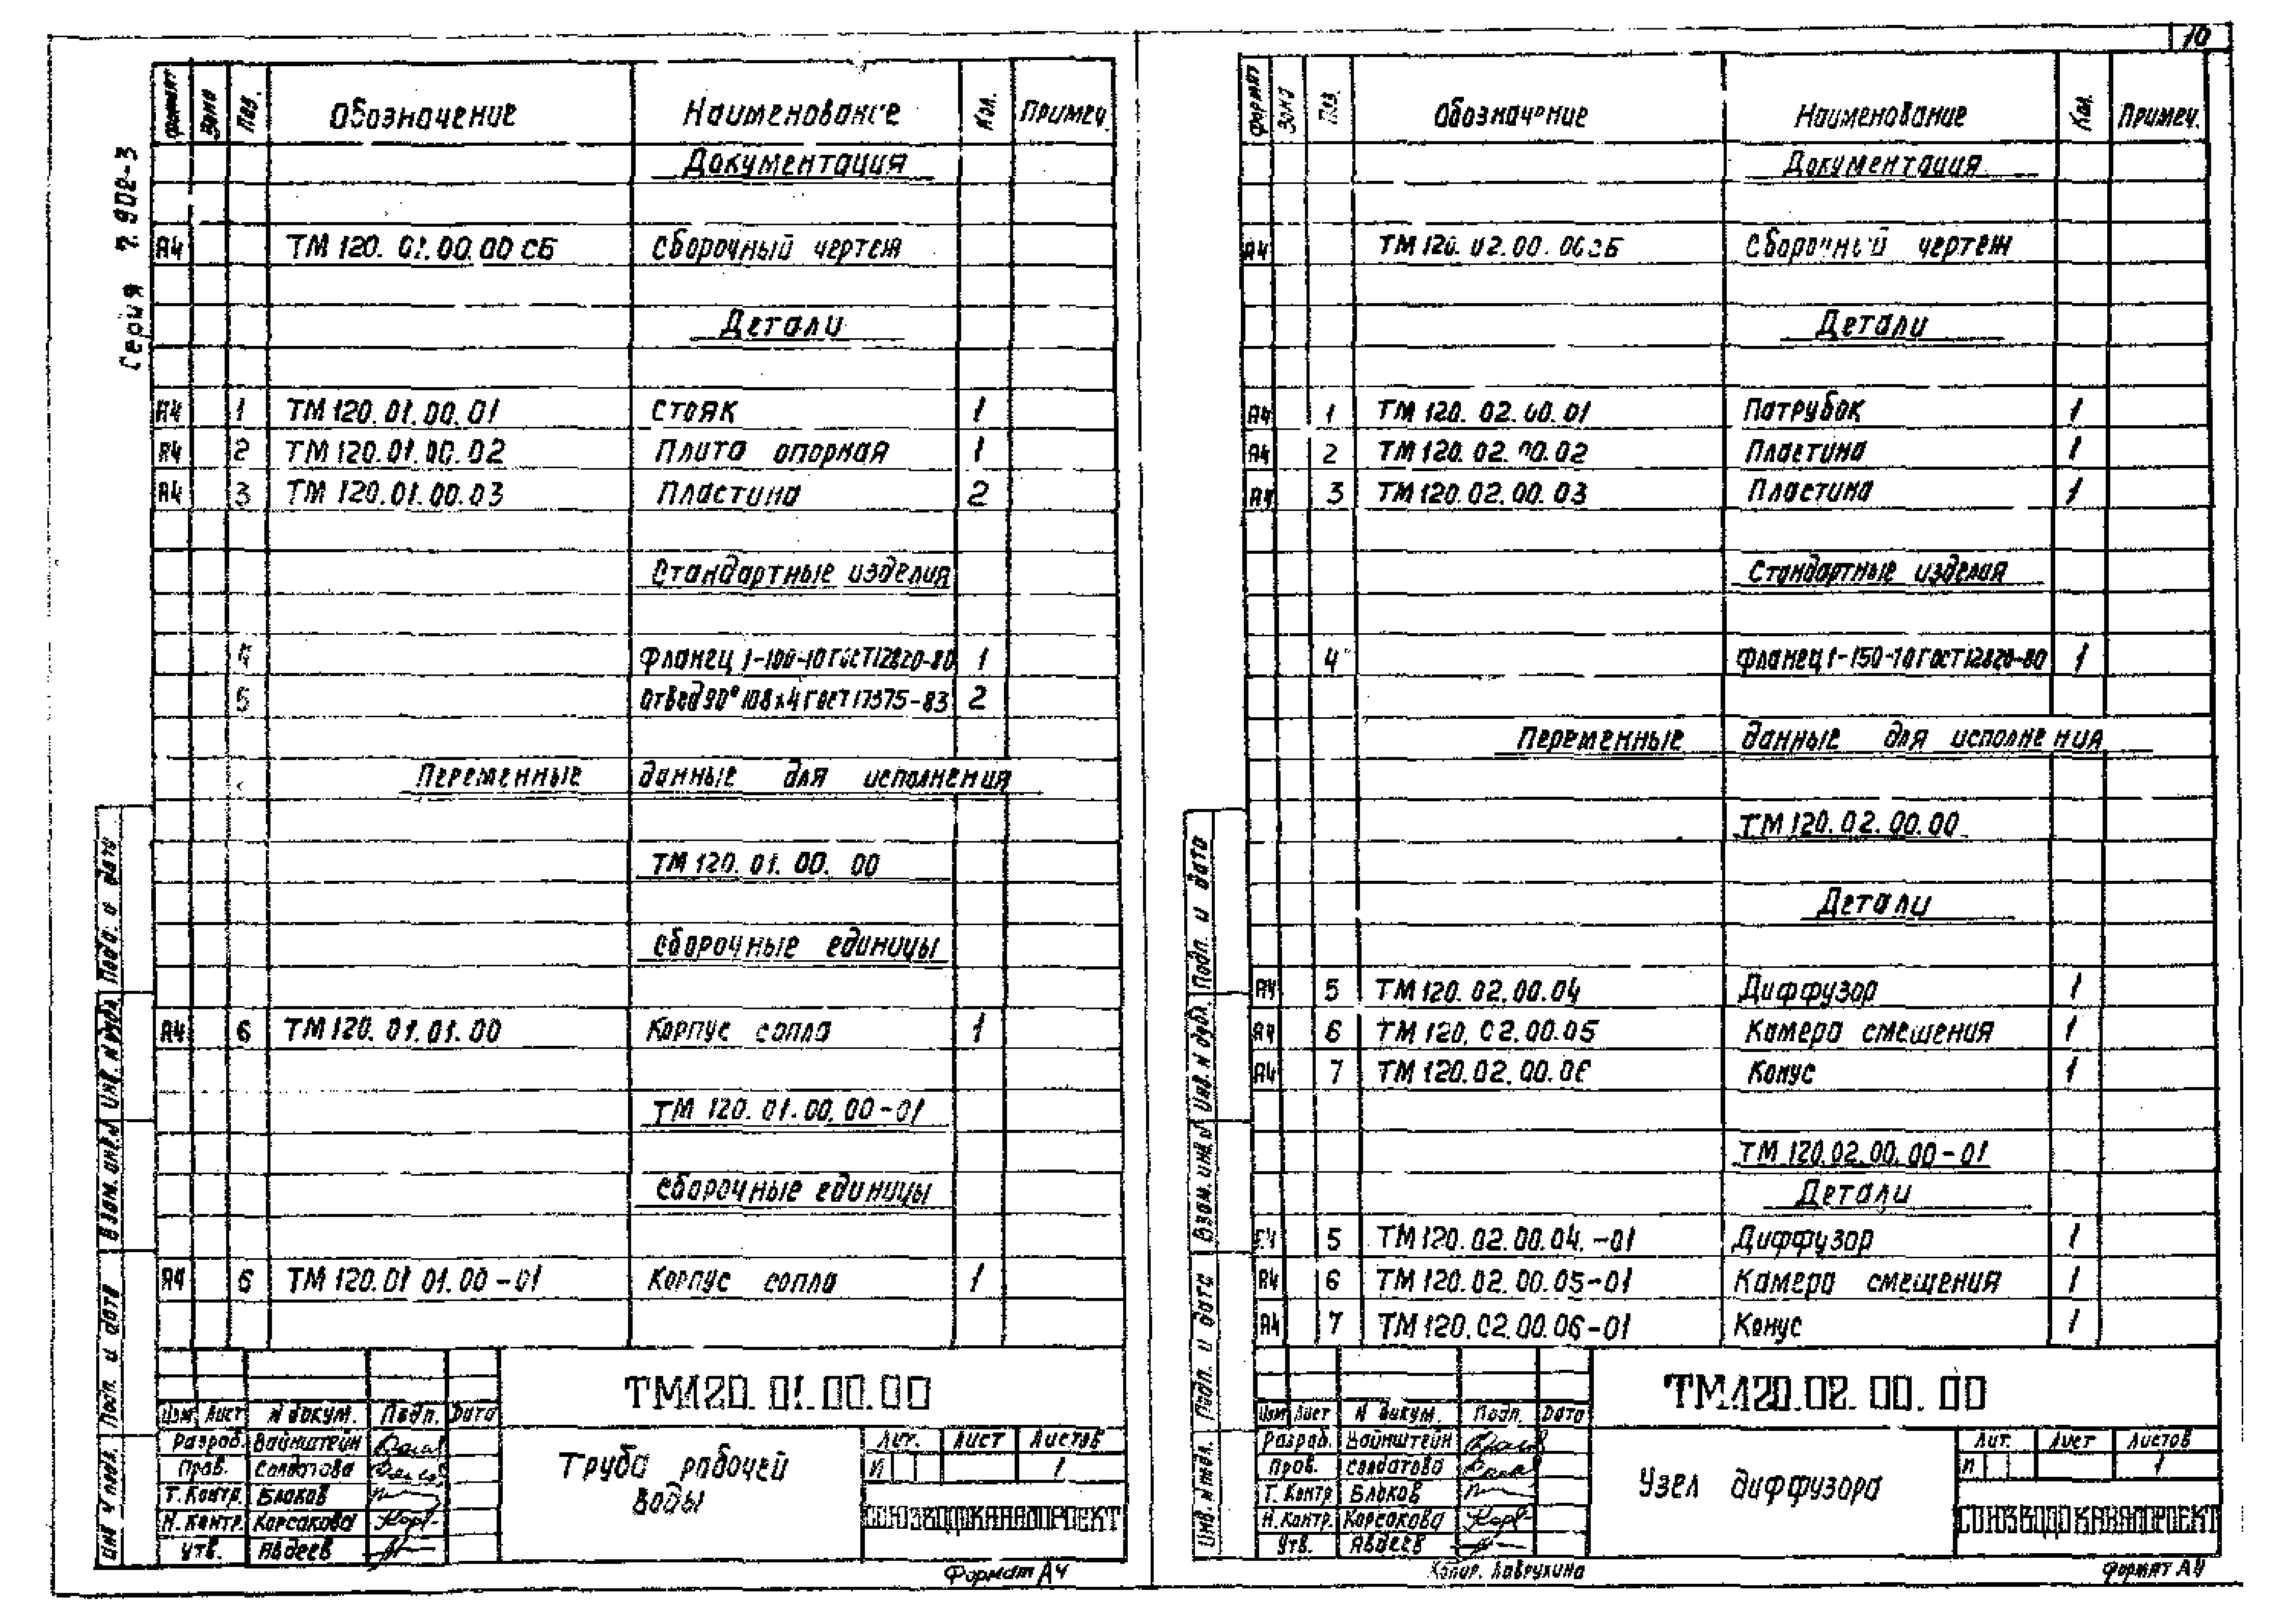 10
Серия 7.902-3
Формат Зона Поз. Обозначение Наименование Кол. Примеч.
Документация
А4 ТМ 120. 01.00.00 СБ Сборочный чертеж
Детали
А4 1 ТМ 120.01.00.01 Стояк 1
А4 2 ТМ 120.01.00.02 Плита опорная 1
А4 3 ТМ 120.01.00.03 Пластина 2
Стандартные изделия
4 Фланец 1-100-10 ГОСТ 12820-80 1
5 Отвод 90° 108х4 ГОСТ 17375-83 2
Переменные данные для исполнения
ТМ 120. 01. 00. 00
Сборочные единицы
А4 6 ТМ 120. 01. 01. 00 Корпус сопла 1
ТМ 120. 01. 00. 00 - 01
Сборочные единицы
А4 6 ТМ 120. 01 01. 00 - 01 Корпус сопла 1
ТМ120. 01. 00. 00
Изм Лист N докум. Подп. Дата
Разраб. Вайнштейн
Пров. Солдатова
Т. Контр. Блоков
Н. Контр. Корсакова
Утв. Авдеев
Труба рабочей
воды
Лит. Лист Листов
И 1
СОЮЗВОДОКАНАЛПРОЕКТ
Формат А4
Инв. N подл. Подп. и дата Взам. инв. N Инв. N дубл. Подп. и дата
Формат Зона Поз. Обозначение Наименование Кол. Примеч.
Документация
А4 ТМ 120. 02. 00. 00СБ Сборочный чертеж
Детали
А4 1 ТМ 120. 02. 00. 01 Патрубок 1
А4 2 ТМ 120. 02. 00. 02 Пластина 1
А4 3 ТМ 120. 02. 00. 03 Пластина 1
Стандартные изделия
4 Фланец 1-150-10 ГОСТ 12820-80 1
Переменные данные для исполнения
ТМ 120. 02. 00. 00
Детали
А4 5 ТМ 120. 02. 00. 04 Диффузор 1
А4 6 ТМ 120. 02. 00. 05 Камера смешения 1
А4 7 ТМ 120. 02. 00. 06 Конус 1
ТМ 120. 02. 00. 00 - 01
Детали
А4 5 ТМ 120. 02. 00. 04. - 01 Диффузор 1
А4 6 ТМ 120. 02. 00. 05-01 Камера смещения 1
А4 7 ТМ 120. 02. 00. 06-01 Конус 1
ТМ120.02. 00. 00
Изм Лист N докум. Подп. Дата
Разраб. Вайнштейн
Пров. Солдатова
Т. Контр Блоков
Н. Контр. Корсакова
Утв. Авдеев
Узел диффузора
Лит. Лист Листов
И 1
СОЮЗВОДОКАНАЛПРОЕКТ
Копир. Лаврухина
Формат А4
Инв. N подл. Подп. и дата Взам. инв. N Инв. N дубл. Подп. и дата